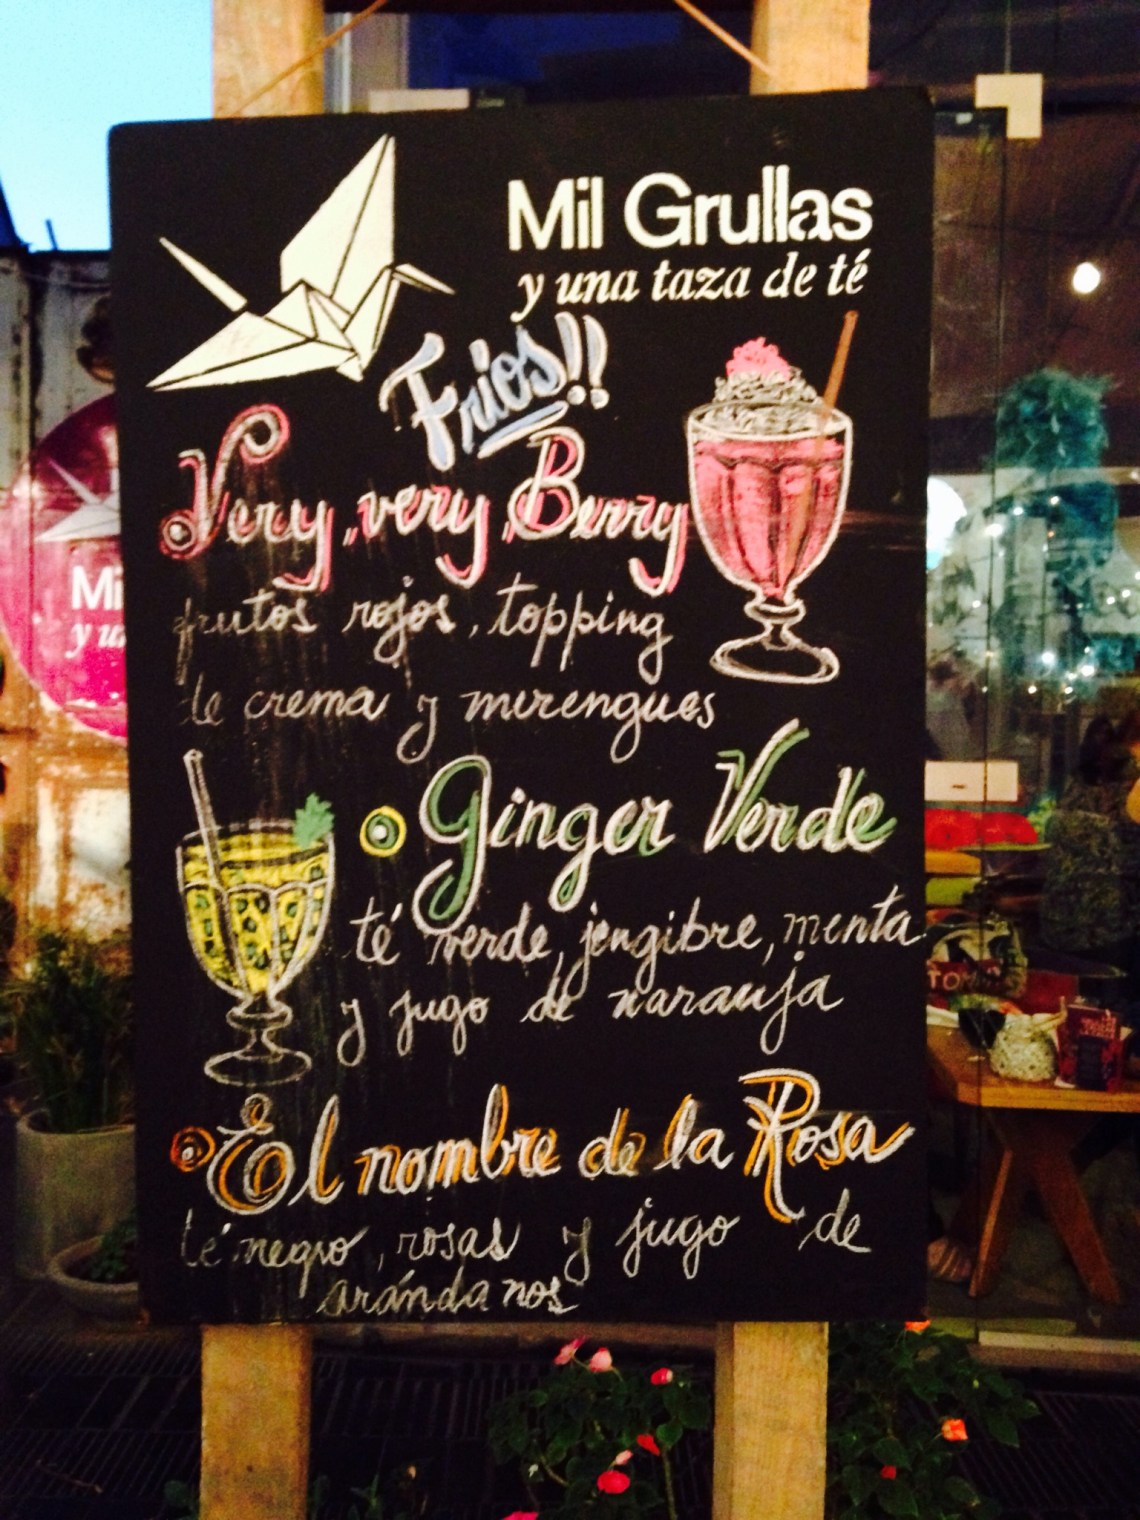 Mil Grullas
y una taza de té
Fríos!!
Very, very, Berry
frutos rojos, topping
de crema y merengues
Ginger Verde
té verde, jengibre, menta
y jugo de naranja
El nombre de la Rosa
té negro, rosas y jugo de
arándanos
Mi
y u
TO